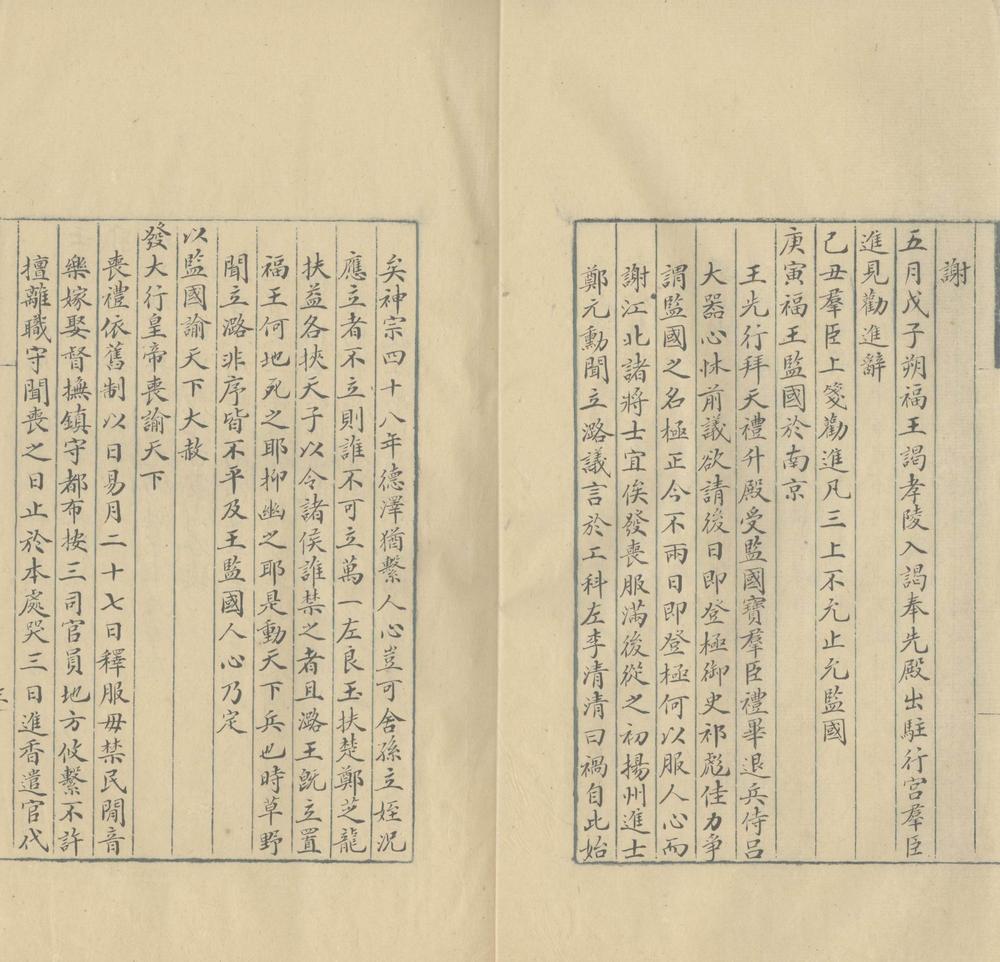 謝
五月戊子朔福王謁孝陵入謁奉先殿出駐行宮羣臣
進見勸進辭
己丑羣臣上箋勸進凡三上不允止允監國
庚寅福王監國於南京
王先行拜天禮升殿受監國寶羣臣禮畢退兵侍呂
大器心怵前議欲請後日即登極御史祁彪佳力爭
謂監國之名極正今不兩日即登極何以服人心而
謝江北諸將士宜俟發喪服滿後從之初揚州進士
鄭元勳聞立潞議言於工科左李清清曰禍自此始
矣神宗四十八年德澤猶繫人心豈可舍孫立姪況
應立者不立則誰不可立萬一左良玉扶楚鄭芝龍
扶益各挾天子以令諸侯誰禁之者且潞王旣立置
福王何地死之耶抑幽之耶是動天下兵也時草野
聞立潞非序皆不平及王監國人心乃定
以監國諭天下大赦
發大行皇帝喪諭天下
喪禮依舊制以日易月二十七日釋服毋禁民閒音
樂嫁娶督撫鎮守都布按三司官員地方攸繫不許
擅離職守聞喪之日止於本處哭三日進香遣官代